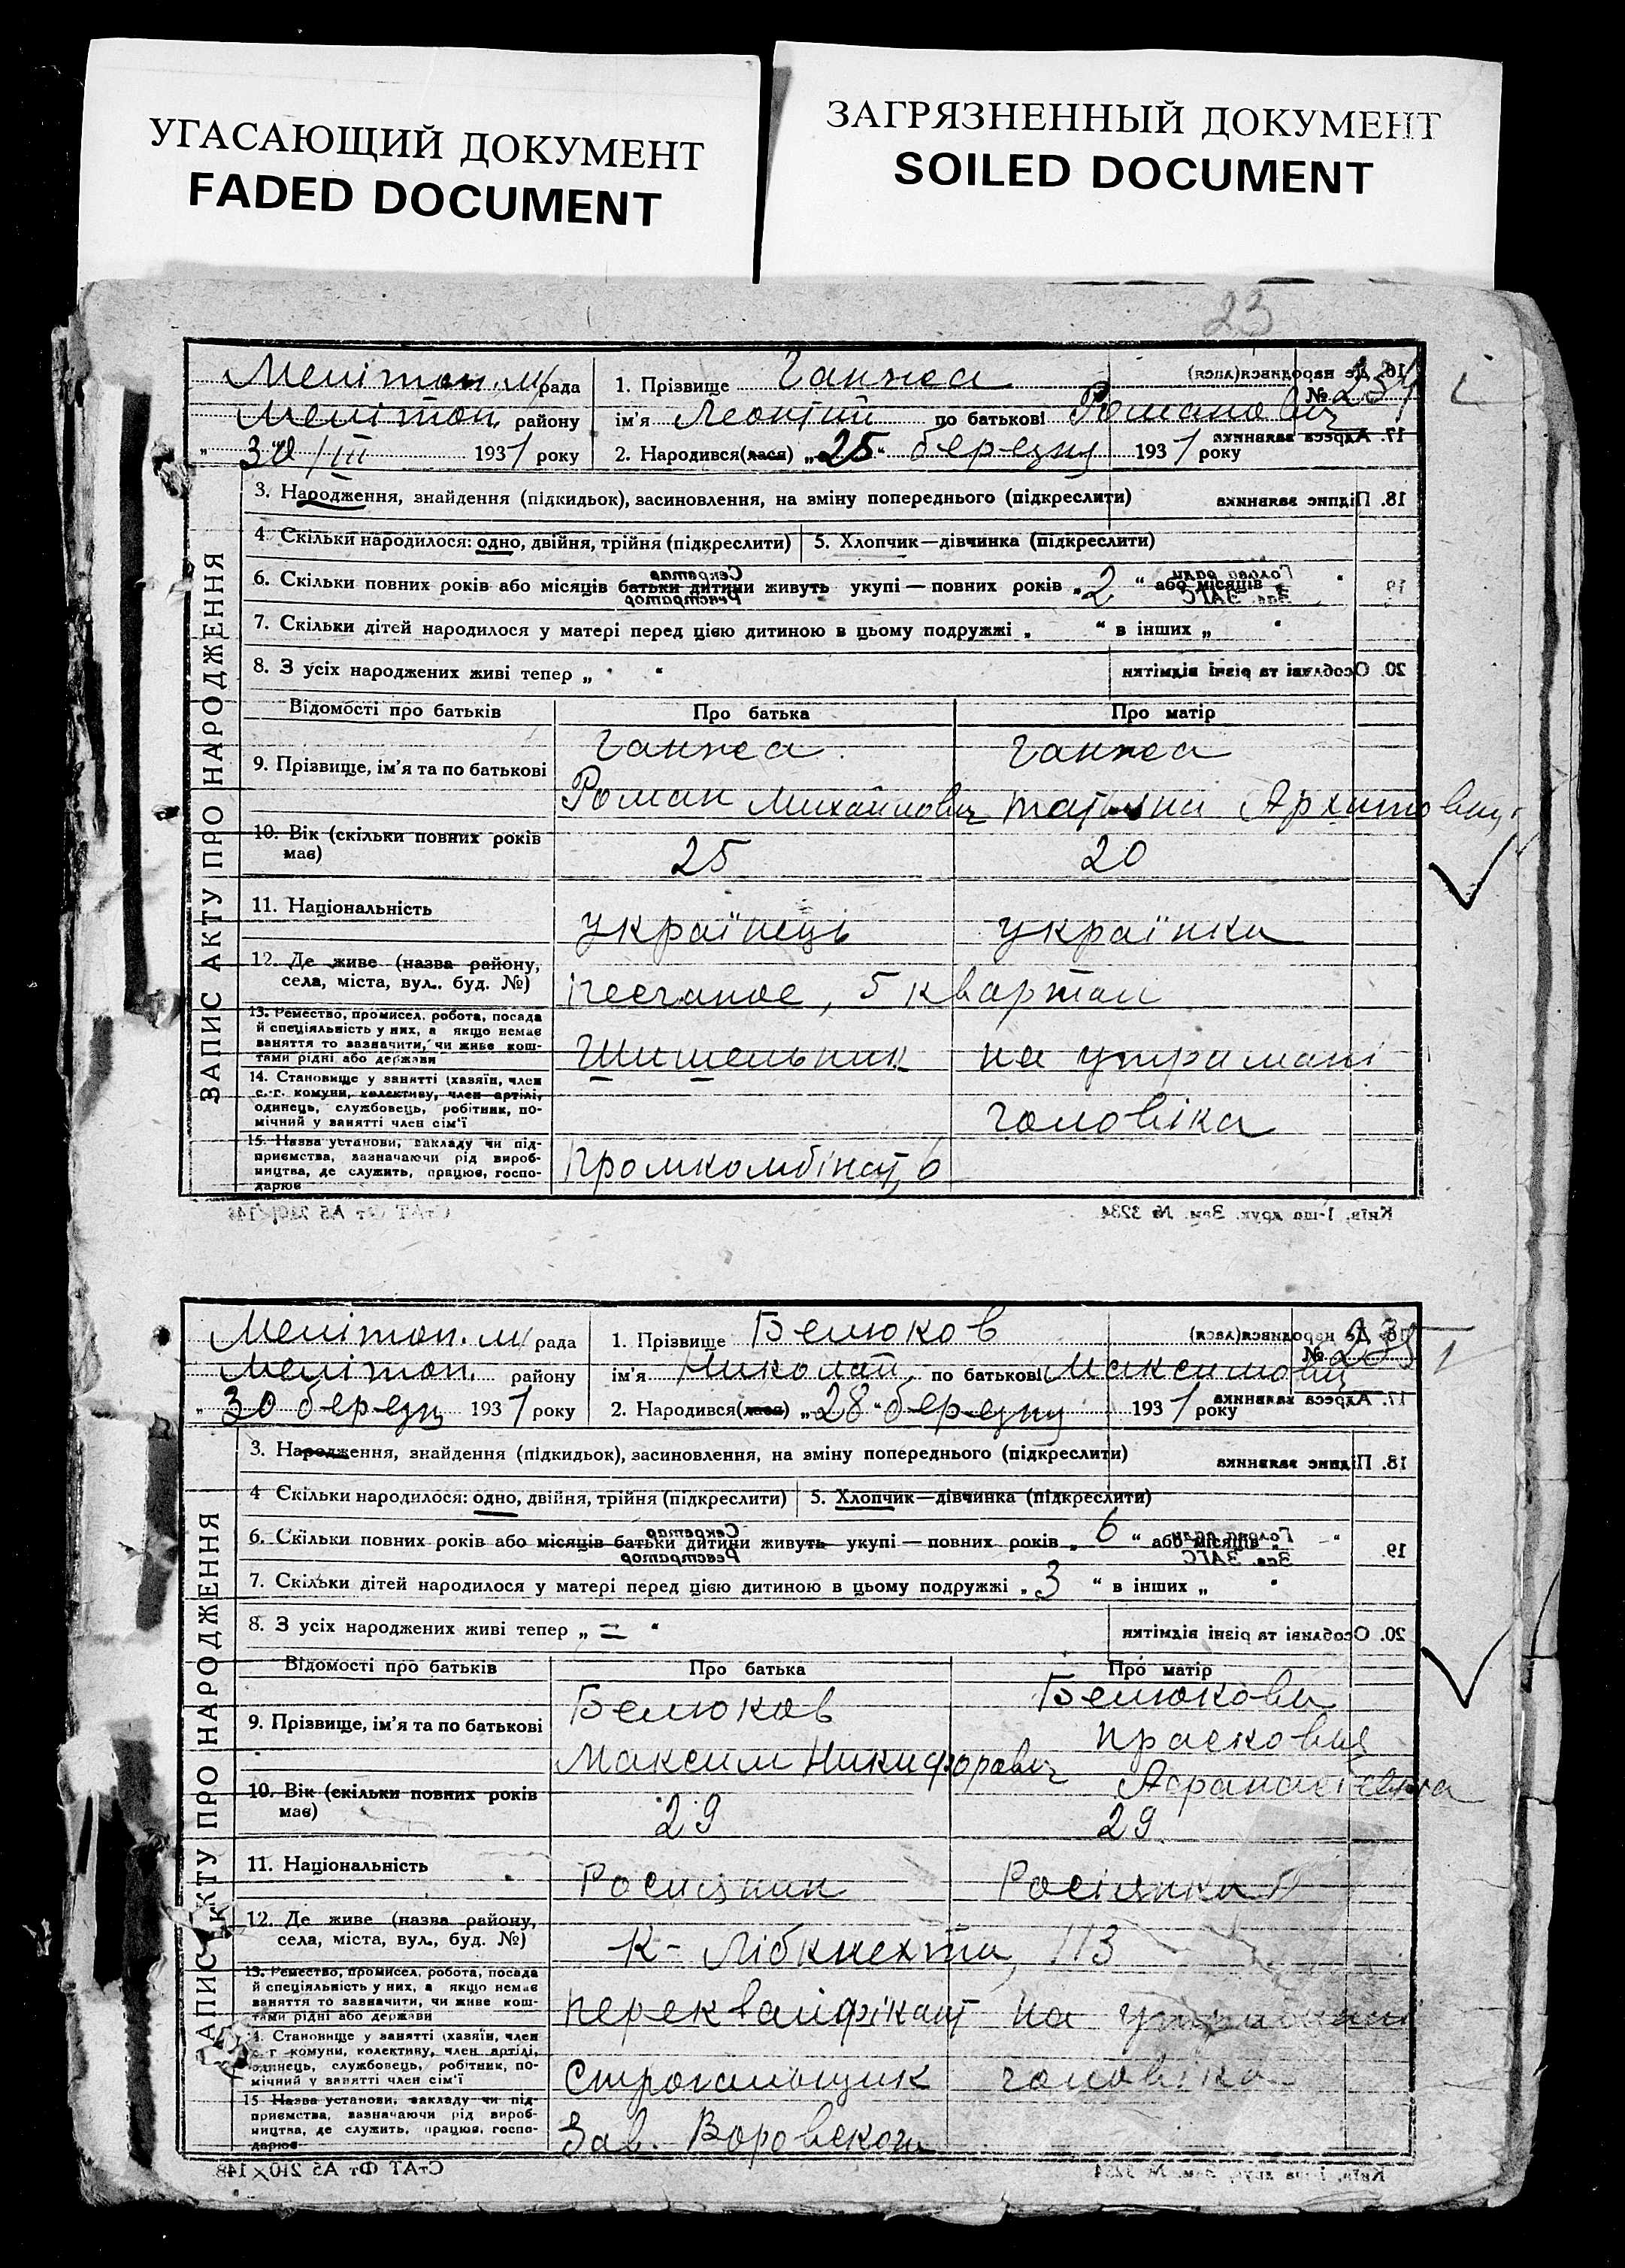 УГАСАЮЩИЙ ДОКУМЕНТ
FADED DOCUMENT
ЗАГРЯЗНЕННЫЙ ДОКУМЕНТ
SOILED DOCUMENT
23
Мелітоп. м/рада 1. Прізвище Ганжа № 234
Мелітоп. району ім'я Леонтій по батькові Романович
„ 30/III 1931 року 2. Народився(лася) „25“ березня 1931 року
ЗАПИС АКТУ ПРО НАРОДЖЕННЯ
3. Народження, знайдення (підкидьок), засиновлення, на зміну попереднього (підкреслити)
4. Скільки народилося: одно, двійня, трійня (підкреслити) 5. Хлопчик—дівчинка (підкреслити)
6. Скільки повних років або місяців батьки дитини живуть укупі — повних років „2“ або місяців
7. Скільки дітей народилося у матері перед цією дитиною в цьому подружжі „ “ в інших „ “
8. З усіх народжених живі тепер „ “
Відомості про батьків Про батька Про матір
9. Прізвище, ім'я та по батькові Ганжа Ганжа
Роман Михайлович
10. Вік (скільки повних років має) 25 20
11. Національність українець українка
12. Де живе (назва району, села, міста, вул. буд. №) 5 квартал
13. Ремество, промисел, робота, посада
й спеціяльність у них, а якщо немає
заняття то зазначити, чи живе кош-
тами рідні або держави на утримані
14. Становище у занятті (хазяїн, член
с.-г. комуни, колективу, член артілі,
одинець, службовець, робітник, по-
мічний у занятті член сім'ї чоловіка
15. Назва установи, закладу чи під-
приємства, зазначаючи рід вироб-
ництва, де служить, працює, госпо-
дарює Промкомбінат
Київ, 1-ша друк. Зам. № 3234
Мелітоп. м/рада 1. Прізвище Белюков № 235
Мелітоп. району ім'я Николай по батькові Максимович
„ 30 березн 1931 року 2. Народився(лася) „28“ березня 1931 року
ЗАПИС АКТУ ПРО НАРОДЖЕННЯ
3. Народження, знайдення (підкидьок), засиновлення, на зміну попереднього (підкреслити)
4 Скільки народилося: одно, двійня, трійня (підкреслити) 5. Хлопчик—дівчинка (підкреслити)
6. Скільки повних років або місяців батьки дитини живуть укупі — повних років „6“ або місяців
7. Скільки дітей народилося у матері перед цією дитиною в цьому подружжі „3“ в інших „ “
8. З усіх народжених живі тепер „ = “
Відомості про батьків Про батька Про матір
9. Прізвище, ім'я та по батькові Белюков Белюкова
Максим Никифорович Прасковія
Афанасієвна
10. Вік (скільки повних років має) 29 29
11. Національність Росиянин Росіянка
12. Де живе (назва району, села, міста, вул., буд. №) К- Лібкнехта, 113
13. Ремество, промисел, робота, посада
й спеціяльність у них, а якщо немає
заняття то зазначити, чи живе кош-
тами рідні або держави на утримані
14. Становище у занятті (хазяїн, член
с.-г комуни, колективу, член артілі,
одинець, службовець, робітник, по-
мічний у занятті член сім'ї Строгальщик чоловіка
15 Назва установи, закладу чи під-
приємства, зазначаючи рід вироб-
ництва, де служить, працює, госпо-
дарює Зав. Воровского
СтАТ Фт А5 210×148